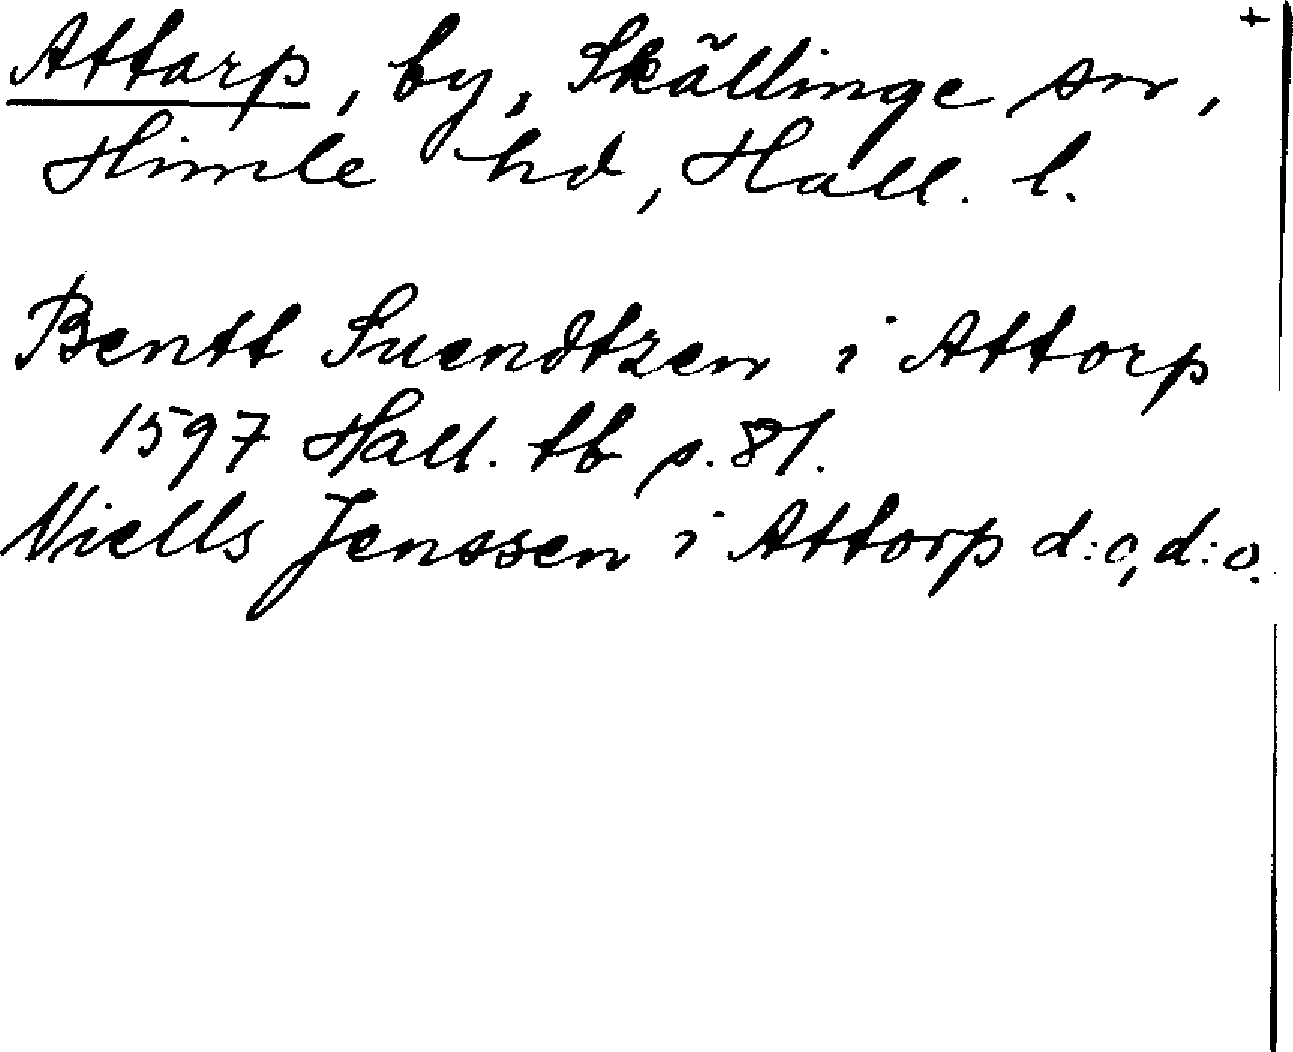 +
Attarp, by, Skällinge sn,
Himle hd, Hall. l.
Bentt Suendtzen i Attorp
1597 Hall. tb s. 81.
Niells Jenssen i Attorp d:o, d:o.